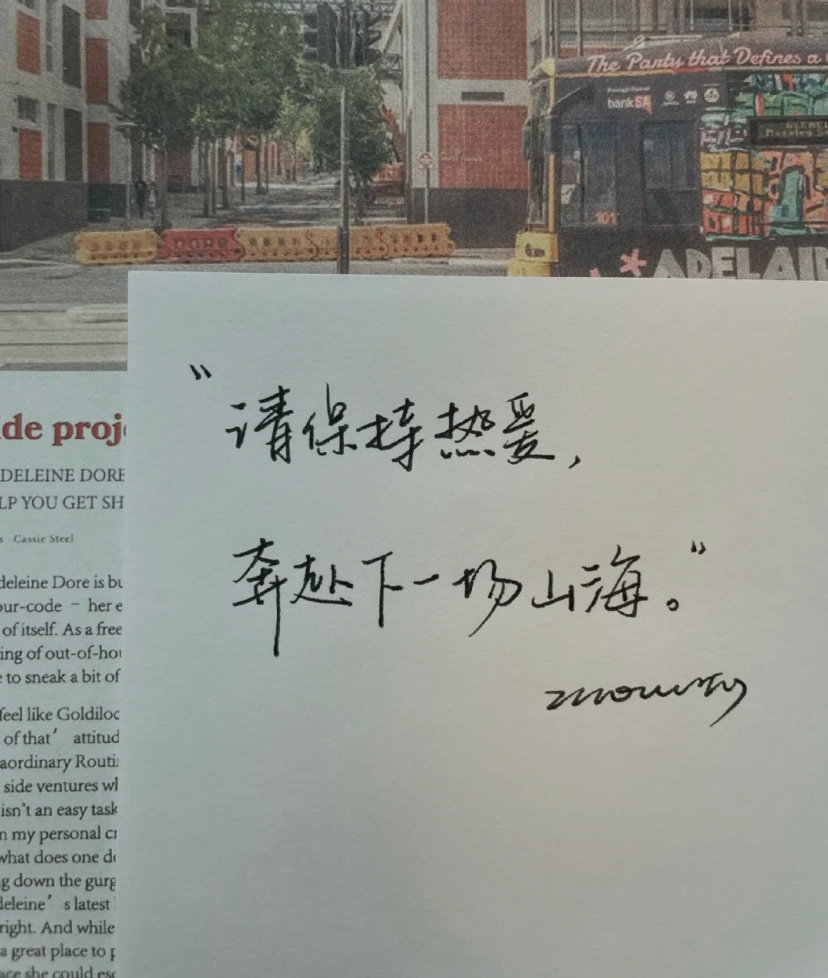 The Party that Defines a
bankSA
101
ADELAID
"请保持热爱，
奔赴下一场山海。"
ide proj
DELEINE DORE
LP YOU GET SH
s Cassie Steel
deleine Dore is bu
our-code – her e
of itself. As a free
ing of out-of-hou
e to sneak a bit of
feel like Goldiloc
of that' attitud
aordinary Routi
side ventures wh
isn't an easy task
n my personal cr
what does one do
g down the gurg
deleine's latest
right. And while
a great place to p
ace she could esc